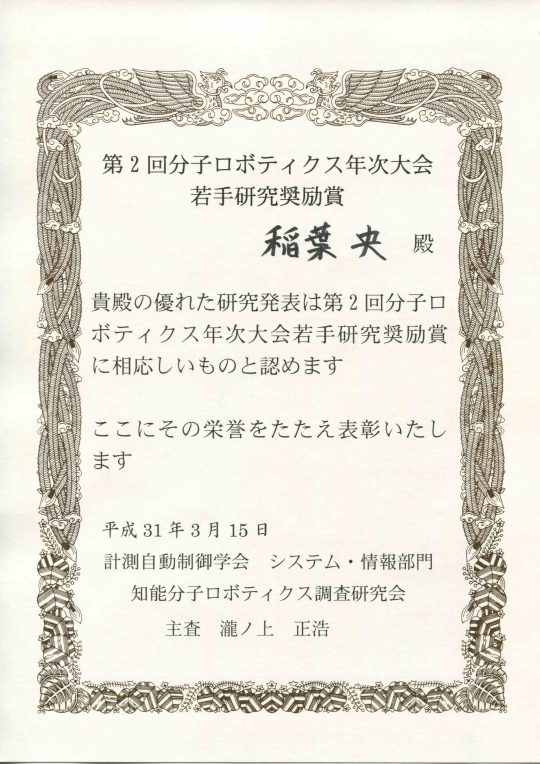 第2回分子ロボティクス年次大会
若手研究奨励賞
稲葉 央 殿
貴殿の優れた研究発表は第2回分子ロ
ボティクス年次大会若手研究奨励賞
に相応しいものと認めます
ここにその栄誉をたたえ表彰いたし
ます
平成31年3月15日
計測自動制御学会 システム・情報部門
知能分子ロボティクス調査研究会
主査 瀧ノ上 正浩